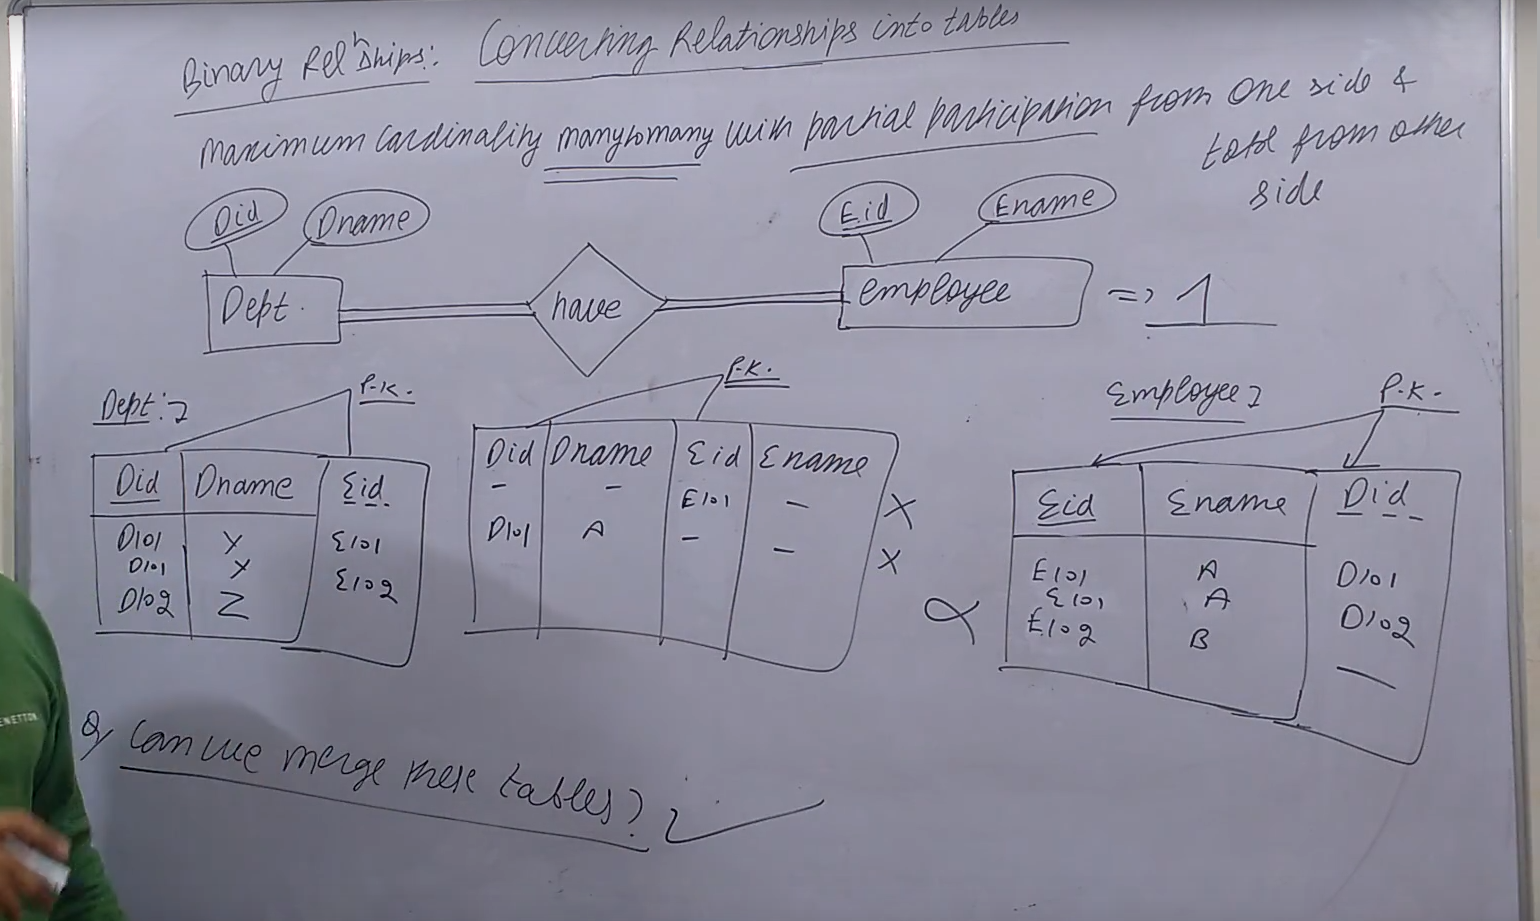 Binary Relʰships: Converting Relationships into tables
maximum cardinality many to many with partial participation from one side &
total from other
side
Did Dname Eid Ename
Dept. have employee => 1
Dept:- P.K. P.K. Employee P.K.
Did Dname Eid
D101 Y E101
D101 Y E102
D102 Z
Did Dname Eid Ename
- - E101 - X
D101 A - - X
Eid Ename Did
E101 A D101
E101 A D102
E102 B —
Q Can we merge these tables?
ENETTON